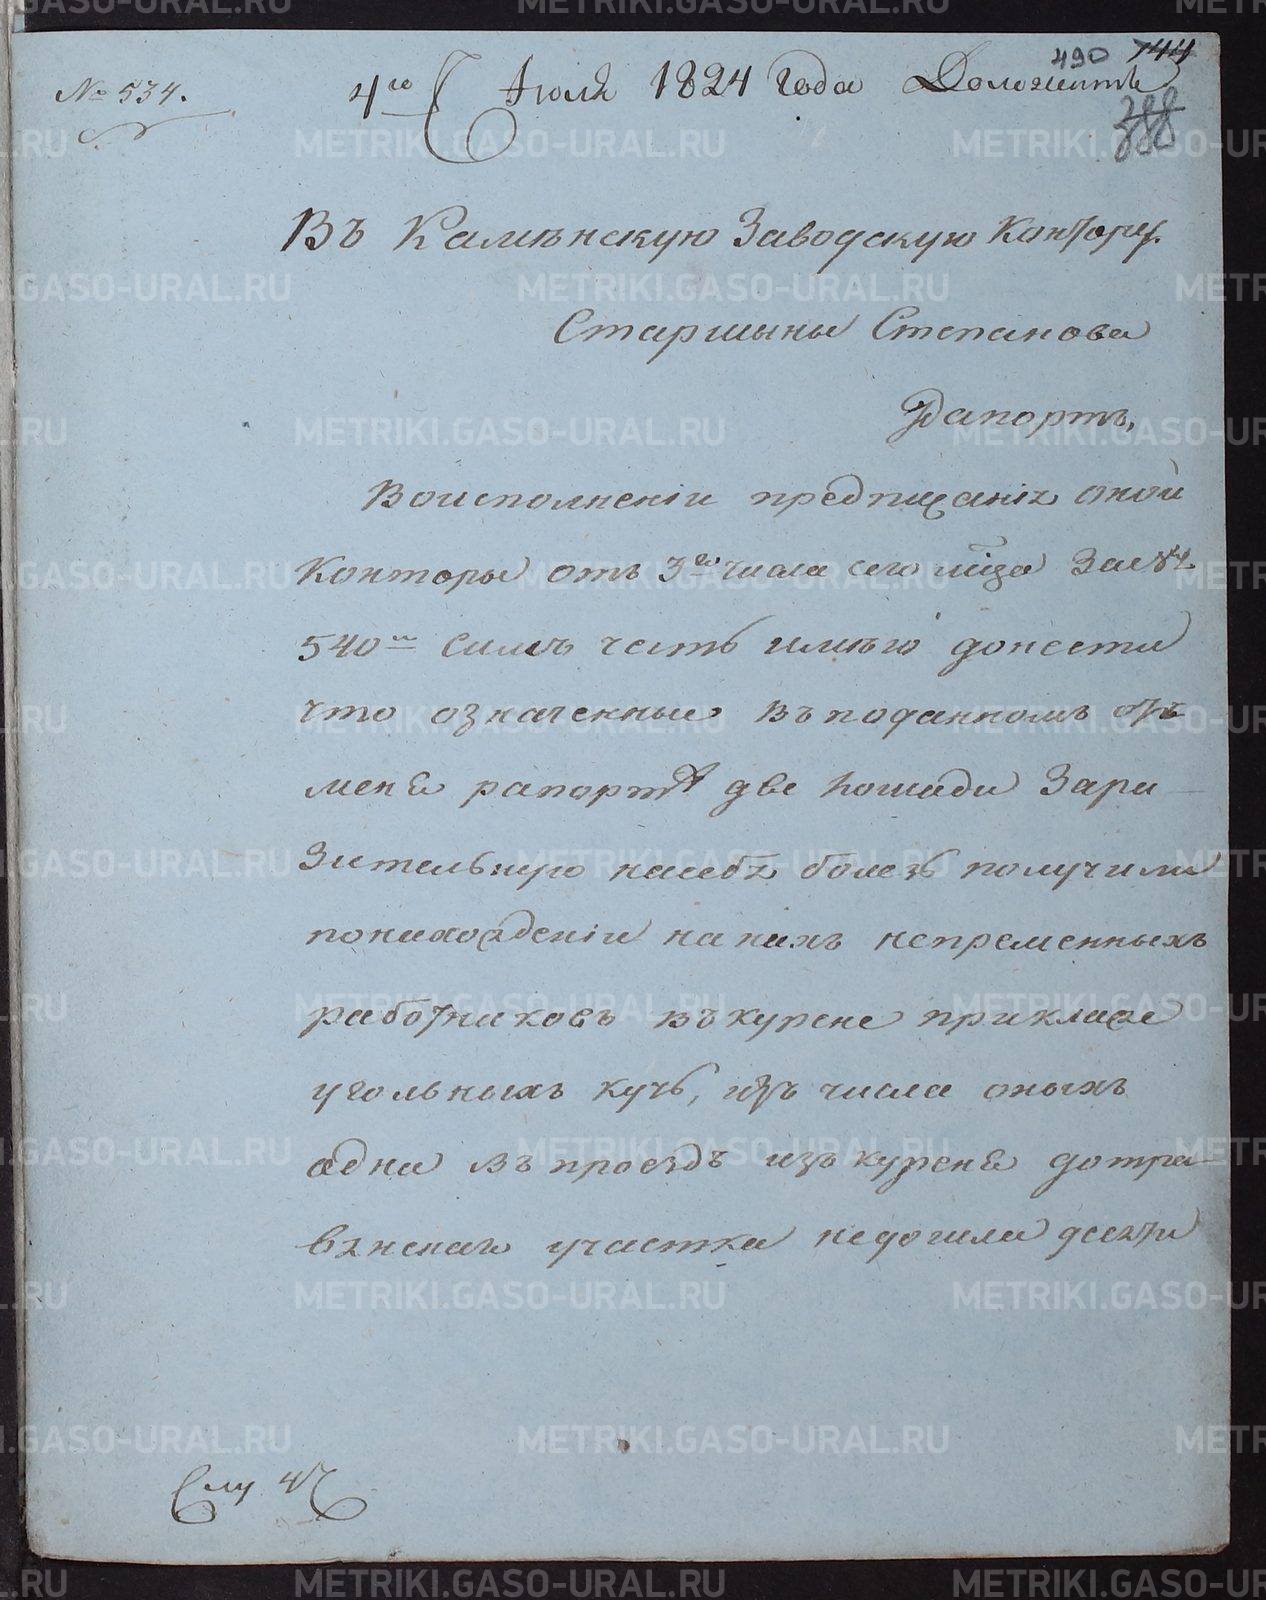 490 744
№ 534.
4го Июля 1824 года Доложить
388
Въ Каменскую Заводскую Контору.
Старшины Степанова
Рапортъ,
Воисполнении предписанія оной
Конторы отъ 3го числа сего мца За №
540м симъ честь имѣю донести
что означенные въ поданномъ отъ
меня рапортѣ две лошади Зара
Зительную насебя болезь получили
понахождении на нихъ непременныхъ
работниковъ въ курене прикладе
угольныхъ кучь, изъ числа оныхъ
одна въ проездъ изъ куреня до тра
вянскаго участка недошла десяти